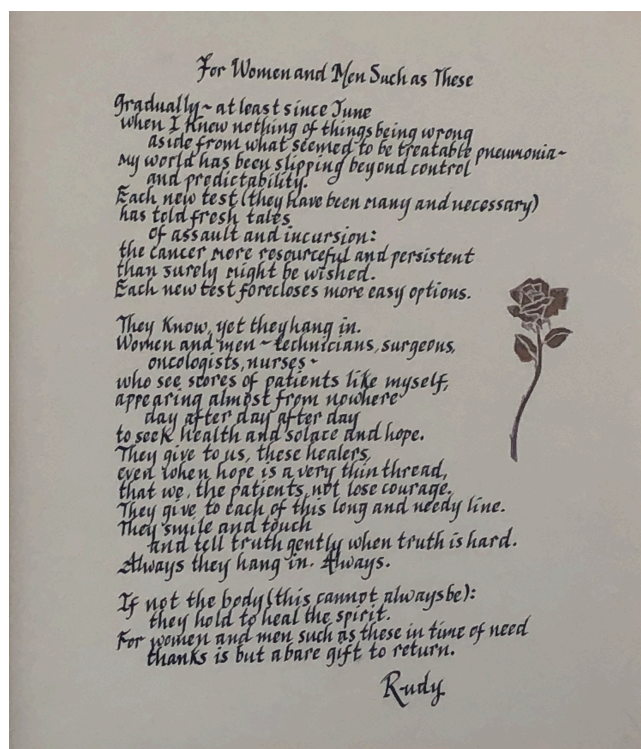 For Women and Men Such as These
Gradually~ at least since June
when I knew nothing of things being wrong
aside from what seemed to be treatable pneumonia~
my world has been slipping beyond control
and predictability.
Each new test (they have been many and necessary)
has told fresh tales
of assault and incursion:
the cancer more resourceful and persistent
than surely might be wished.
Each new test forecloses more easy options.
They know, yet they hang in.
Women and men ~ technicians, surgeons,
oncologists, nurses ~
who see scores of patients like myself,
appearing almost from nowhere
day after day after day
to seek health and solace and hope.
They give to us, these healers,
even when hope is a very thin thread,
that we, the patients, not lose courage.
They give to each of this long and needy line.
They smile and touch
and tell truth gently when truth is hard.
Always they hang in. Always.
If not the body (this cannot always be):
they hold to heal the spirit.
For women and men such as these in time of need
thanks is but a bare gift to return.
Rudy